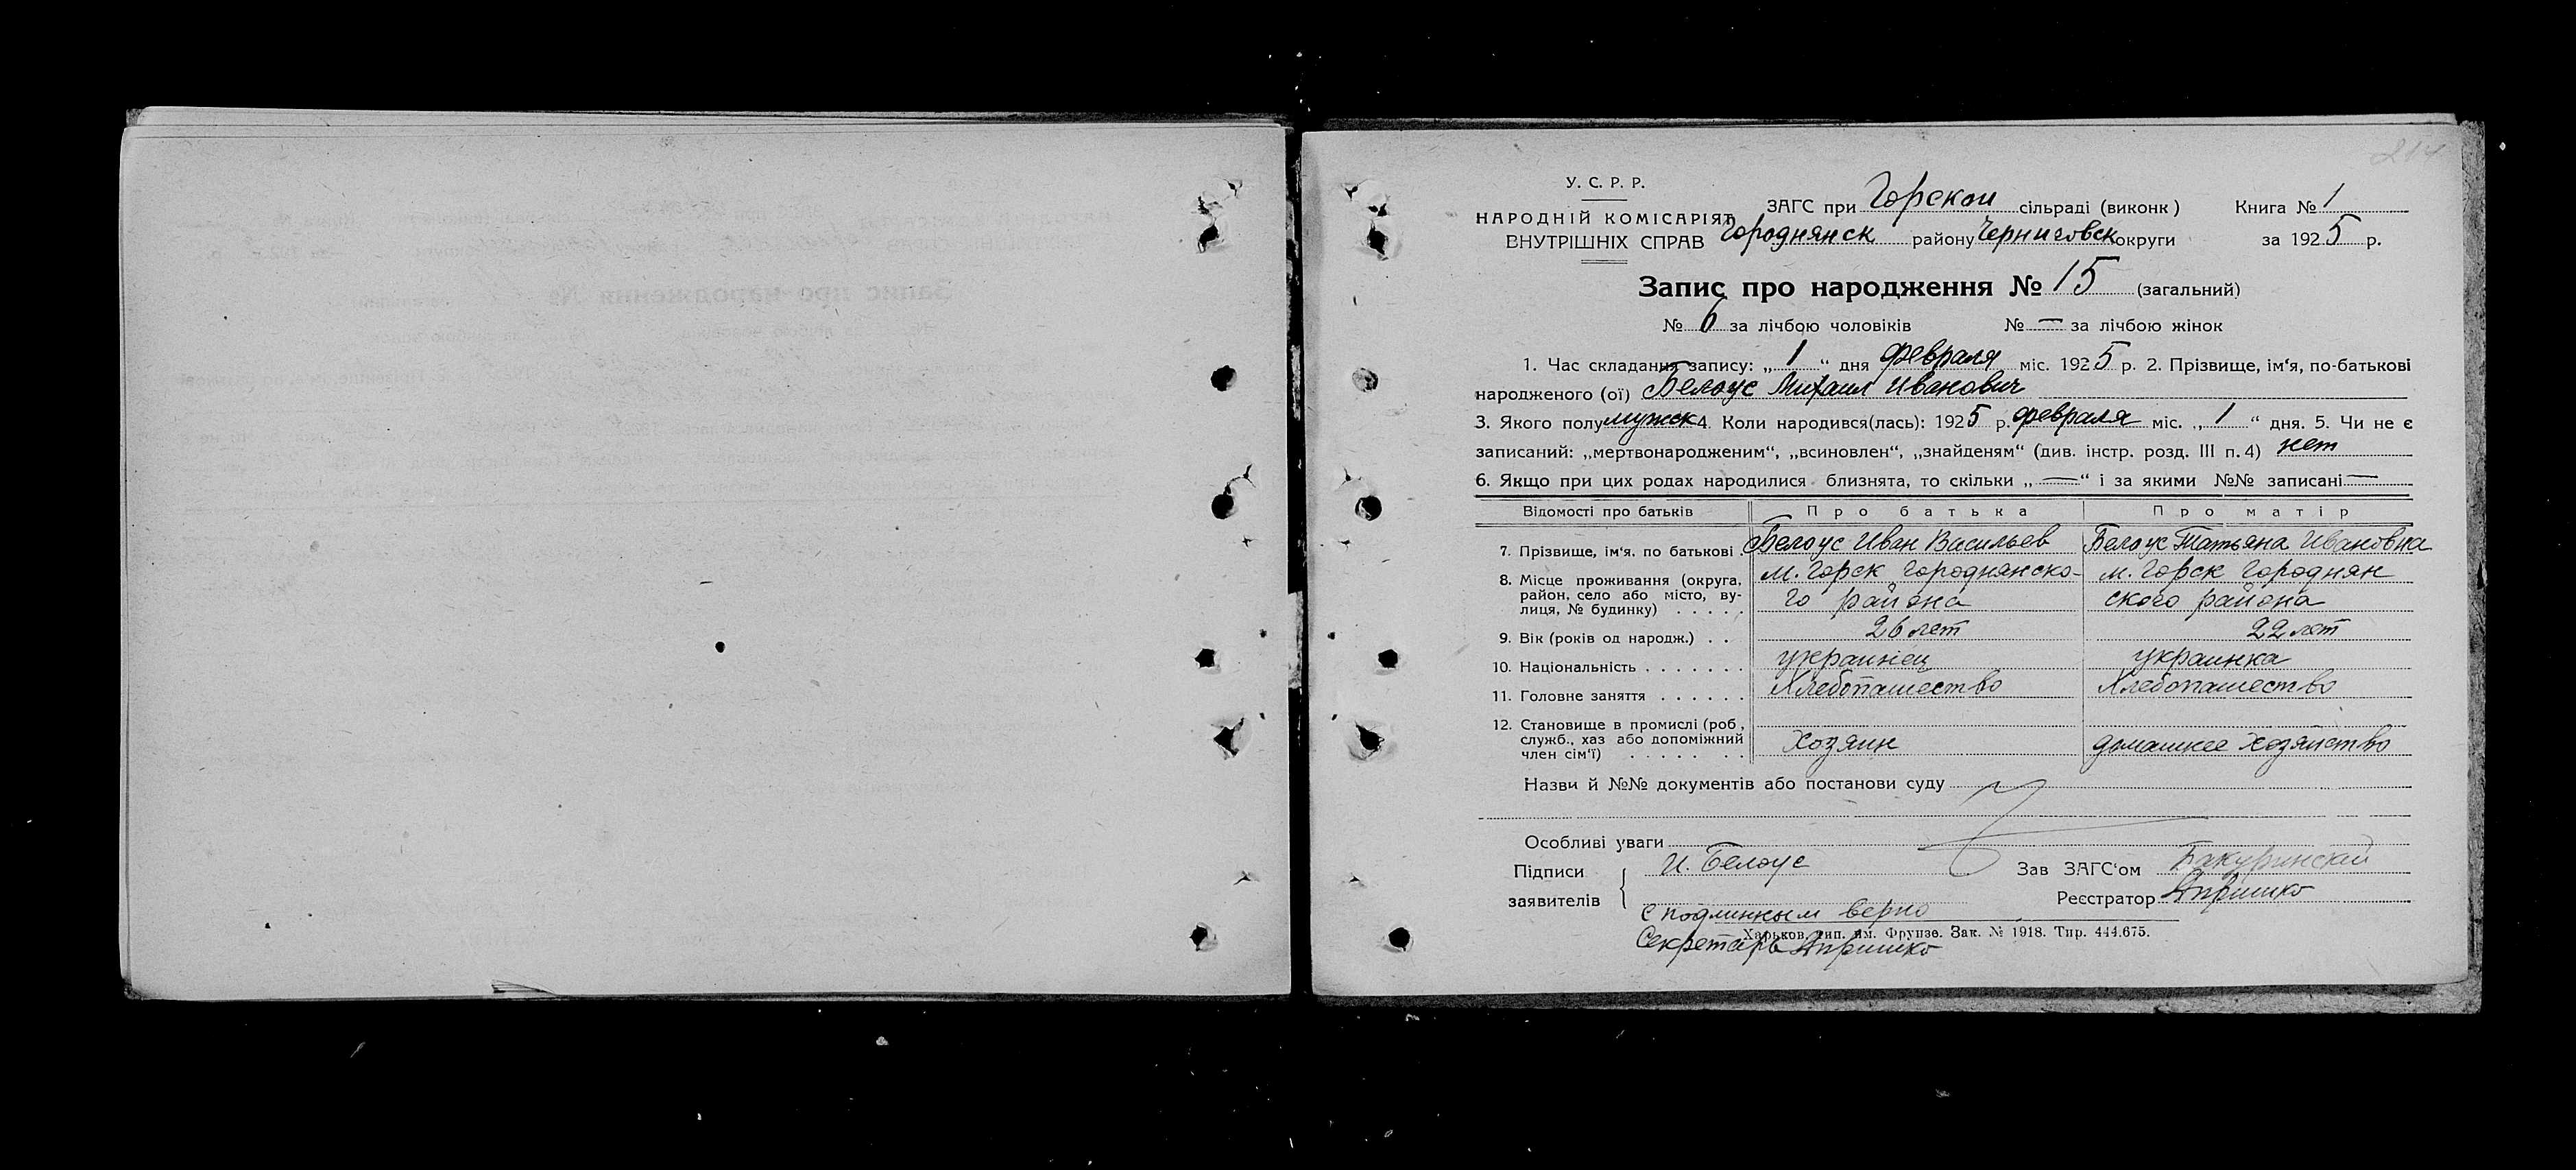 214
У. С. Р. Р.
НАРОДНІЙ КОМІСАРІЯТ
ВНУТРІШНІХ СПРАВ
ЗАГС при Горской сільраді (виконк) Книга № 1
Городнянск району Черниговск округи за 1925 р.
Запис про народження № 15 (загальний)
№ 6 за лічбою чоловіків № — за лічбою жінок
1. Час складання запису: „ 1 “ дня февраля міс. 1925 р. 2. Прізвище, ім‘я, по-батькові
народженого (ої) Белоус Михаил Иванович
3. Якого полу мужск 4. Коли народився(лась): 1925 р. февраля міс. „ 1 “ дня. 5. Чи не є
записаний: „мертвонародженим“, „всиновлен“, „знайденям“ (див. інстр. розд. III п. 4) нет
6. Якщо при цих родах народилися близнята, то скільки „ — “ і за якими №№ записані —
Відомості про батьків Про батька Про матір
7. Прізвище, ім‘я. по батькові . Белоус Иван Васильев Белоус Татьяна Ивановна
8. Місце проживання (округа, район, село або місто, вулиця, № будинку) . . . . . м. Горск Городнянско- м. Горск Городнян
го района ского района
9. Вік (років од народж.) . . 26 лет 22 лет
10. Національність . . . . . . . украинец украинка
11. Головне заняття . . . . . . Хлебопашество Хлебопашество
12. Становище в промислі (роб,
служб., хаз або допоміжний
член сім‘ї) . . . . . . . Хозяин домашнее хозяйство
Назви й №№ документів або постанови суду
Особливі уваги
Підписи И. Белоус Зав ЗАГС‘ом Бакуринский
заявителів Реєстратор
С подлинным верно
Харьков, тип. им. Фрунзе. Зак. № 1918. Тир. 444.675.
Секретарь